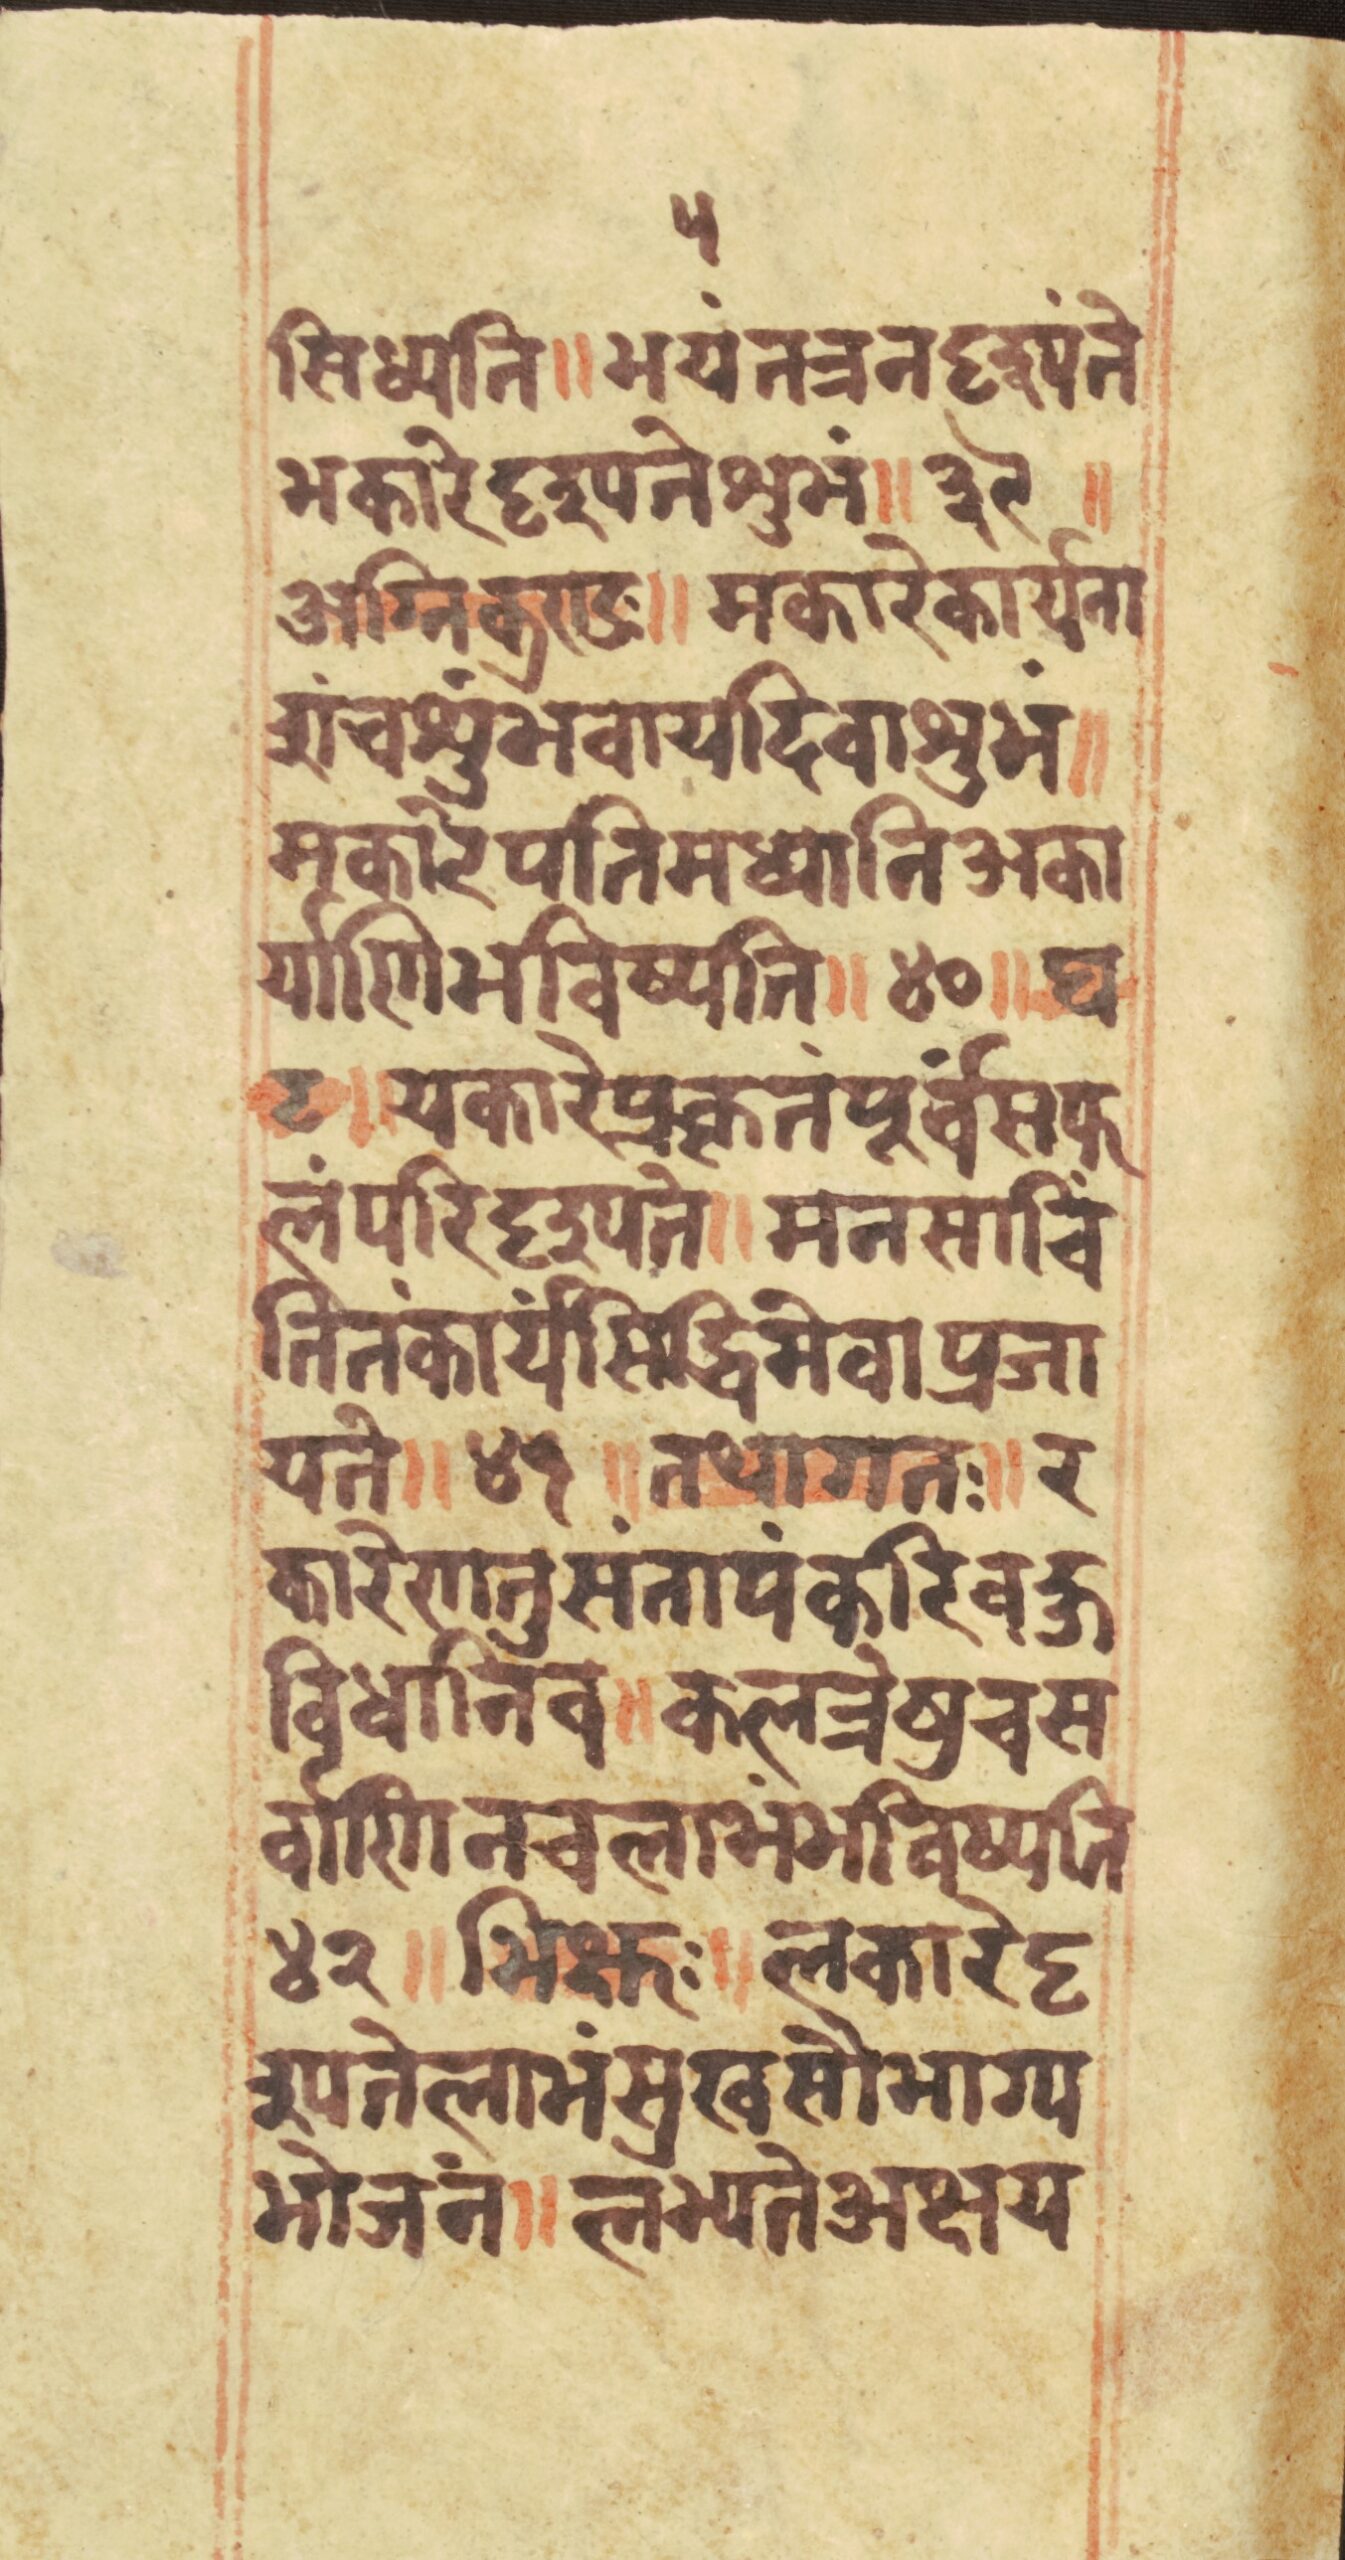 ५
सिध्यति॥भयंतत्रनदृश्यंते
भकारेदृश्यतेशुभं॥३९॥
अग्निकुण्डः॥मकारेकार्यना
शंचशुंभवायदिवाशुभं॥
मकारेपतिमध्यानिअका
र्याणिभविष्यति॥४०॥घ
ट॥यकारेप्रकृतंपूर्वंसफ
लंपरिदृश्यते॥मनसाचिं
तितंकार्यंसिद्धिमेवाप्रजा
यते॥४१॥तथागतः॥र
कारेणानुसंतापंकरिवक्रु
विधानिव॥कलत्रेषुचस
र्वाणिनचलाभंभविष्यति
४२॥भिक्षुः॥लकारेदृ
श्यतेलाभंसुखसौभाग्य
भोजनं॥लभ्यतेअक्षय